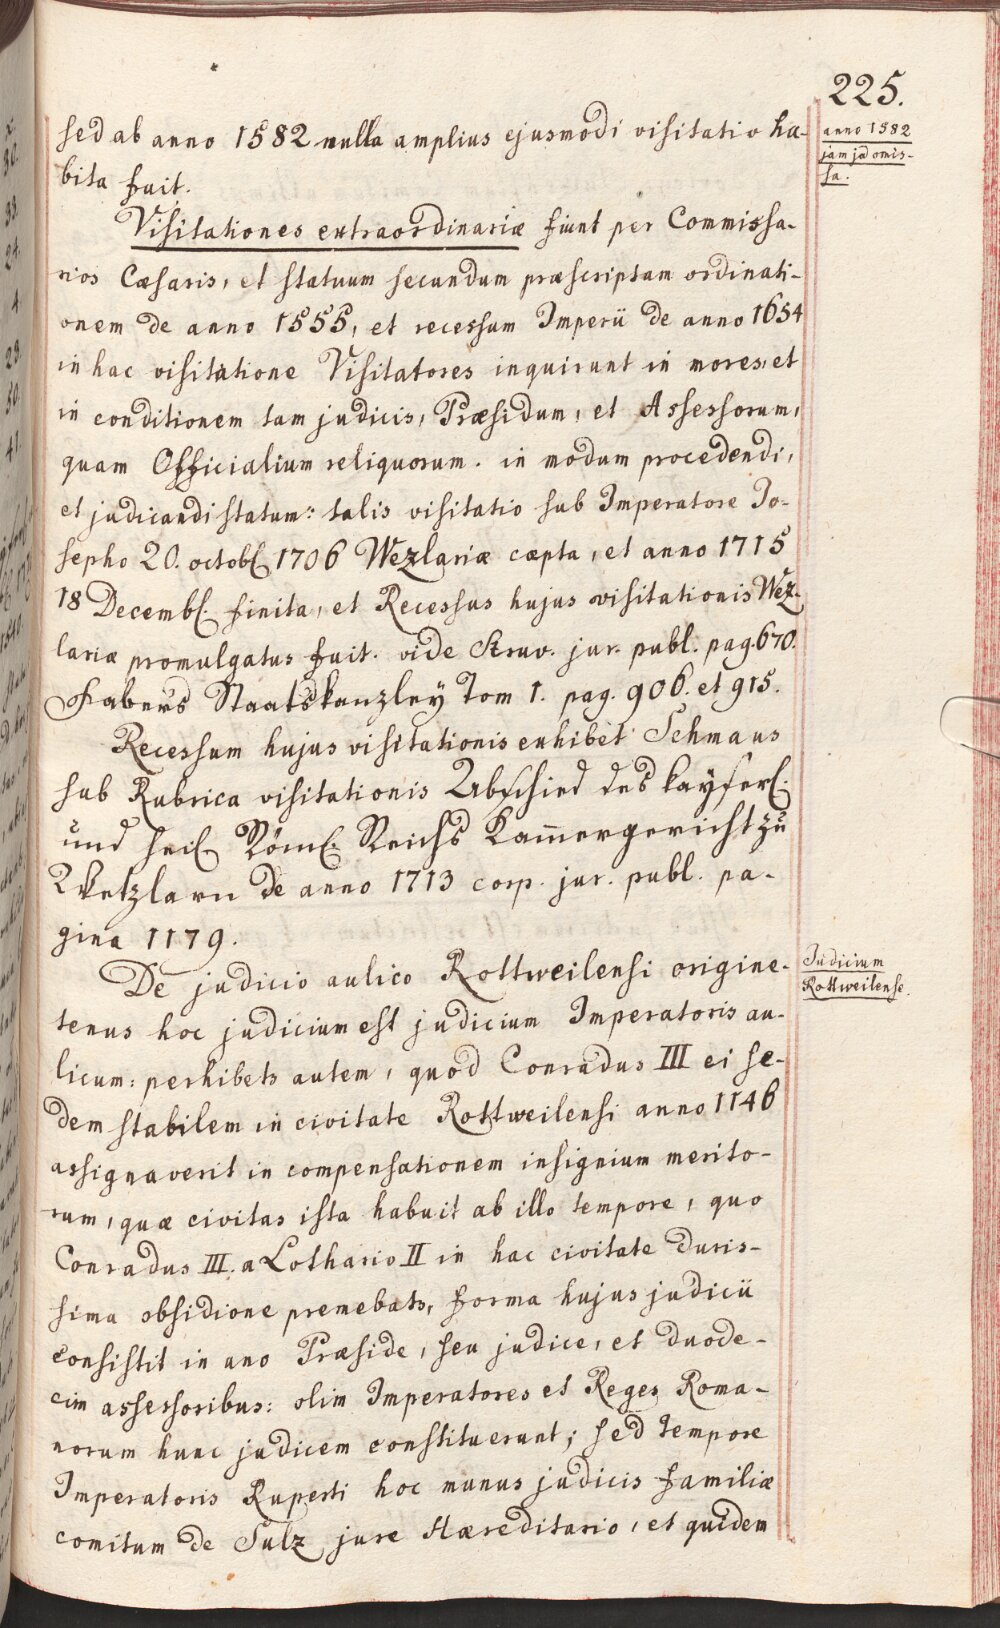 225.
sed ab anno 1582 nulla amplius ejusmodi visitatio ha-
bita fuit.
anno 1582
jam jã omis-
sa.
Visitationes extraordinariæ fiunt per Commissa-
rios Cæsaris, et statuum secundum præscriptam ordinati-
onem de anno 1555, et recessum Imperii de anno 1654
in hac visitatione Visitatores inquirunt in mores, et
in conditionem tam judicis, Præsidum, et Assessorum,
quam Officialium reliquorum. in modum procedendi,
et judicandi statum: talis visitatio sub Imperatore Jo-
sepho 20. octobr. 1706 Wezlariæ cæpta, et anno 1715
18 Decembr. finita, et Recessus hujus visitationis Wez-
lariæ promulgatus fuit. vide Struv. jur. publ. pag. 670.
Fabers Staatskanzley Tom 1. pag. 906. et 915.
Recessum hujus visitationis exhibet Schmaus
sub Rubrica visitationis Abschied des kayserl.
und heil. Röml. Reichs Kam̄ergericht zu
Wetzlarn de anno 1713 corp. jur. publ. pa-
gina 1179.
De judicio aulico Rottweilensi origine-
Judicium
Rottweilense.
tenus hoc judicium est judicium Imperatoris au-
licum: perhibets autem, quod Conradus III ei se-
dem stabilem in civitate Rottweilensi anno 1146
assignaverit in compensationem insignium merito-
rum, quæ civitas ista habuit ab illo tempore, quo
Conradus III. a Lothario II in hac civitate duris-
sima obsidione premebats, forma hujus judicii
consistit in uno Præside, seu judice, et duode-
cim assessoribus: olim Imperatores et Reges Roma-
norum hunc judicem constituerunt; sed tempore
Imperatoris Ruperti hoc munus judicis familiæ
comitum de Sulz jure Hæreditario, et quidem